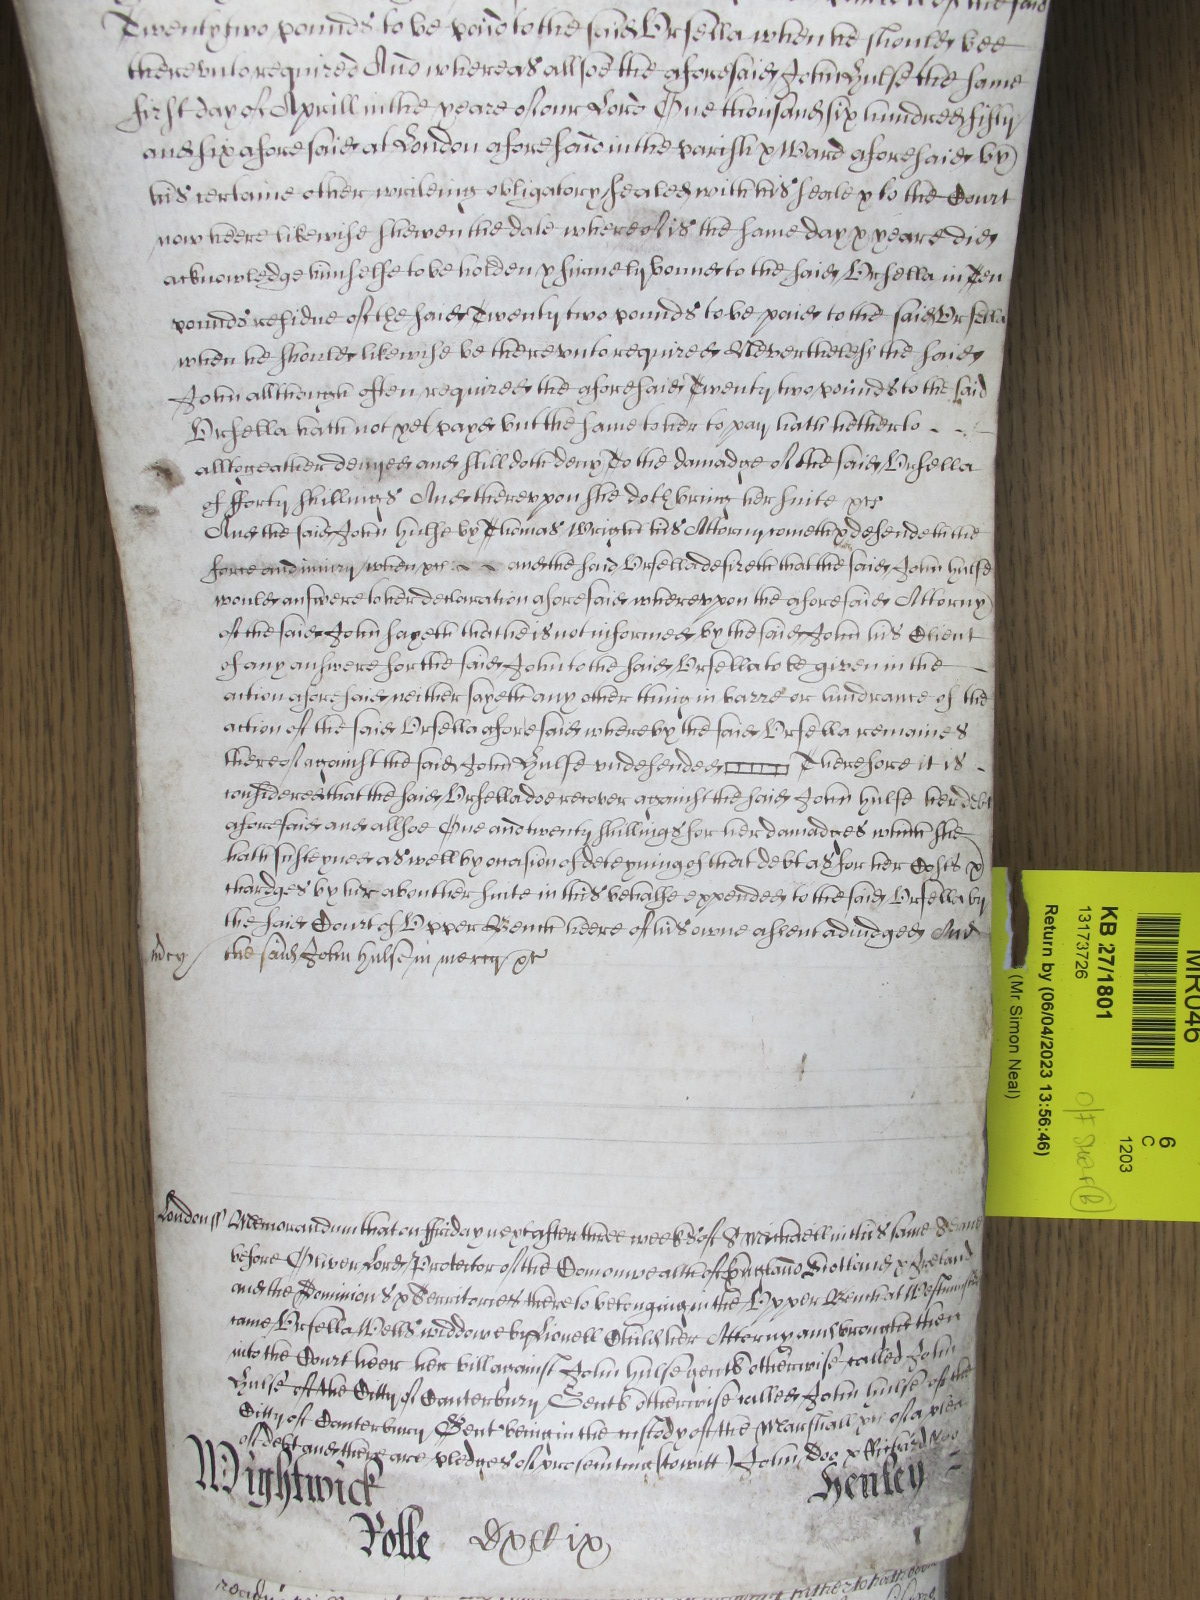 the said
Twenty two pounds to be paid to the said Ursella when he should bee
thereunto required And whereas allsoe the aforesaid John Hulse the same
first day of Aprill in the yeare of our Lord One thousand six hundred fifty
and six aforesaid at London aforesaid in the parish & Ward aforesaid by
his certaine other writeing obligatory sealed with his seale & to the Court
now heere likewise shewen the date whereof is the same day & yeare did
acknowledge himselfe to be holden & firmely bound to the said Ursella in Ten
pounds residue of the said Twenty two pounds to be paid to the said Ursella
when he should likewise be thereunto required Neverthelesse the said
John allthough often required the aforesaid Twenty two pounds to the said
Ursella hath not yet payd but the same to her to pay hath hetherto
alltogeather denyed and still doth deny To the damadge of the said Ursella
of fforty shillings And thereupon she doth bring her suite &c
And the said John Hulse by Thomas Wright his Attorny cometh & defendeth the
force and iniury when &c and the said Ursella desireth that the said John Hulse
would answere to her declaration aforesaid whereupon the aforesaid Attorny
of the said John sayeth that he is not informed by the said John his Client
of any answere for the said John to the said Ursella to be given in the
action aforesaid neither sayeth any other thing in barre or hindrance of the
action of the said Ursella aforesaid whereby the said Ursella remaines
thereof against the said John Hulse undefended Therefore it is
considered that the said Ursella doe recover against the said John Hulse her debt
aforesaid and allsoe One and twenty shillings for her damadges which she
hath susteyned as well by occasion of deteyning of that debt as for her Costs &
chardges by her about her suite in this behalfe expended to the said Ursella by
the said Court of Upper Bench heere of his owne assent adiudged And
mcy the said John Hulse in mercy &c
London ss Memorandum that on ffriday next after three weeks of S Michaell in this same Terme
before Oliver Lord Protector of the Comonwealth of England Scotland & Ireland
and the Dominions & Territories thereto belonging in the Upper Bench at Westminster
came Ursella Wells widdowe by Lionell Child her Attorny and brought then
into the Court heer her bill against John Hulse gent otherwise called John
Hulse of the Citty of Canterbury Gent otherwise called John Hulse of the
Citty of Canterbury Gent being in the custody of the Marshall &c of a plea
of debt and there are pledges of prosecuting (to witt) John Doo & Richard Roo
Wightwick Henley
Rolle
MR046
6
C
1203
KB 27/1801
13173726
Return by (06/04/2023 13:56:46)
(Mr Simon Neal)